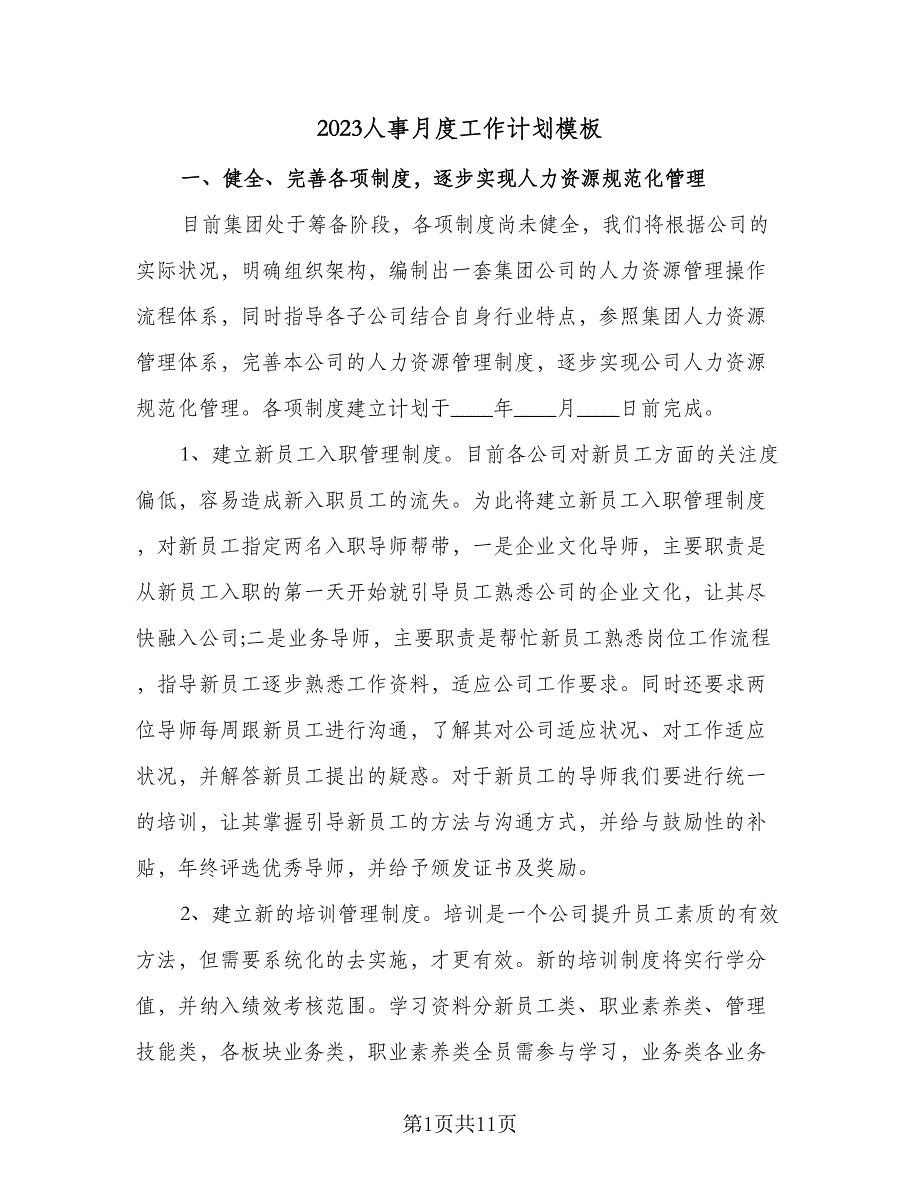 2023人事月度工作计划模板
一、健全、完善各项制度，逐步实现人力资源规范化管理
目前集团处于筹备阶段，各项制度尚未健全，我们将根据公司的
实际状况，明确组织架构，编制出一套集团公司的人力资源管理操作
流程体系，同时指导各子公司结合自身行业特点，参照集团人力资源
管理体系，完善本公司的人力资源管理制度，逐步实现公司人力资源
规范化管理。各项制度建立计划于____年____月____日前完成。
1、建立新员工入职管理制度。目前各公司对新员工方面的关注度
偏低，容易造成新入职员工的流失。为此将建立新员工入职管理制度
，对新员工指定两名入职导师帮带，一是企业文化导师，主要职责是
从新员工入职的第一天开始就引导员工熟悉公司的企业文化，让其尽
快融入公司;二是业务导师，主要职责是帮忙新员工熟悉岗位工作流程
，指导新员工逐步熟悉工作资料，适应公司工作要求。同时还要求两
位导师每周跟新员工进行沟通，了解其对公司适应状况、对工作适应
状况，并解答新员工提出的疑惑。对于新员工的导师我们要进行统一
的培训，让其掌握引导新员工的方法与沟通方式，并给与鼓励性的补
贴，年终评选优秀导师，并给予颁发证书及奖励。
2、建立新的培训管理制度。培训是一个公司提升员工素质的有效
方法，但需要系统化的去实施，才更有效。新的培训制度将实行学分
值，并纳入绩效考核范围。学习资料分新员工类、职业素养类、管理
技能类，各板块业务类，职业素养类全员需参与学习，业务类各业务
第1页共11页